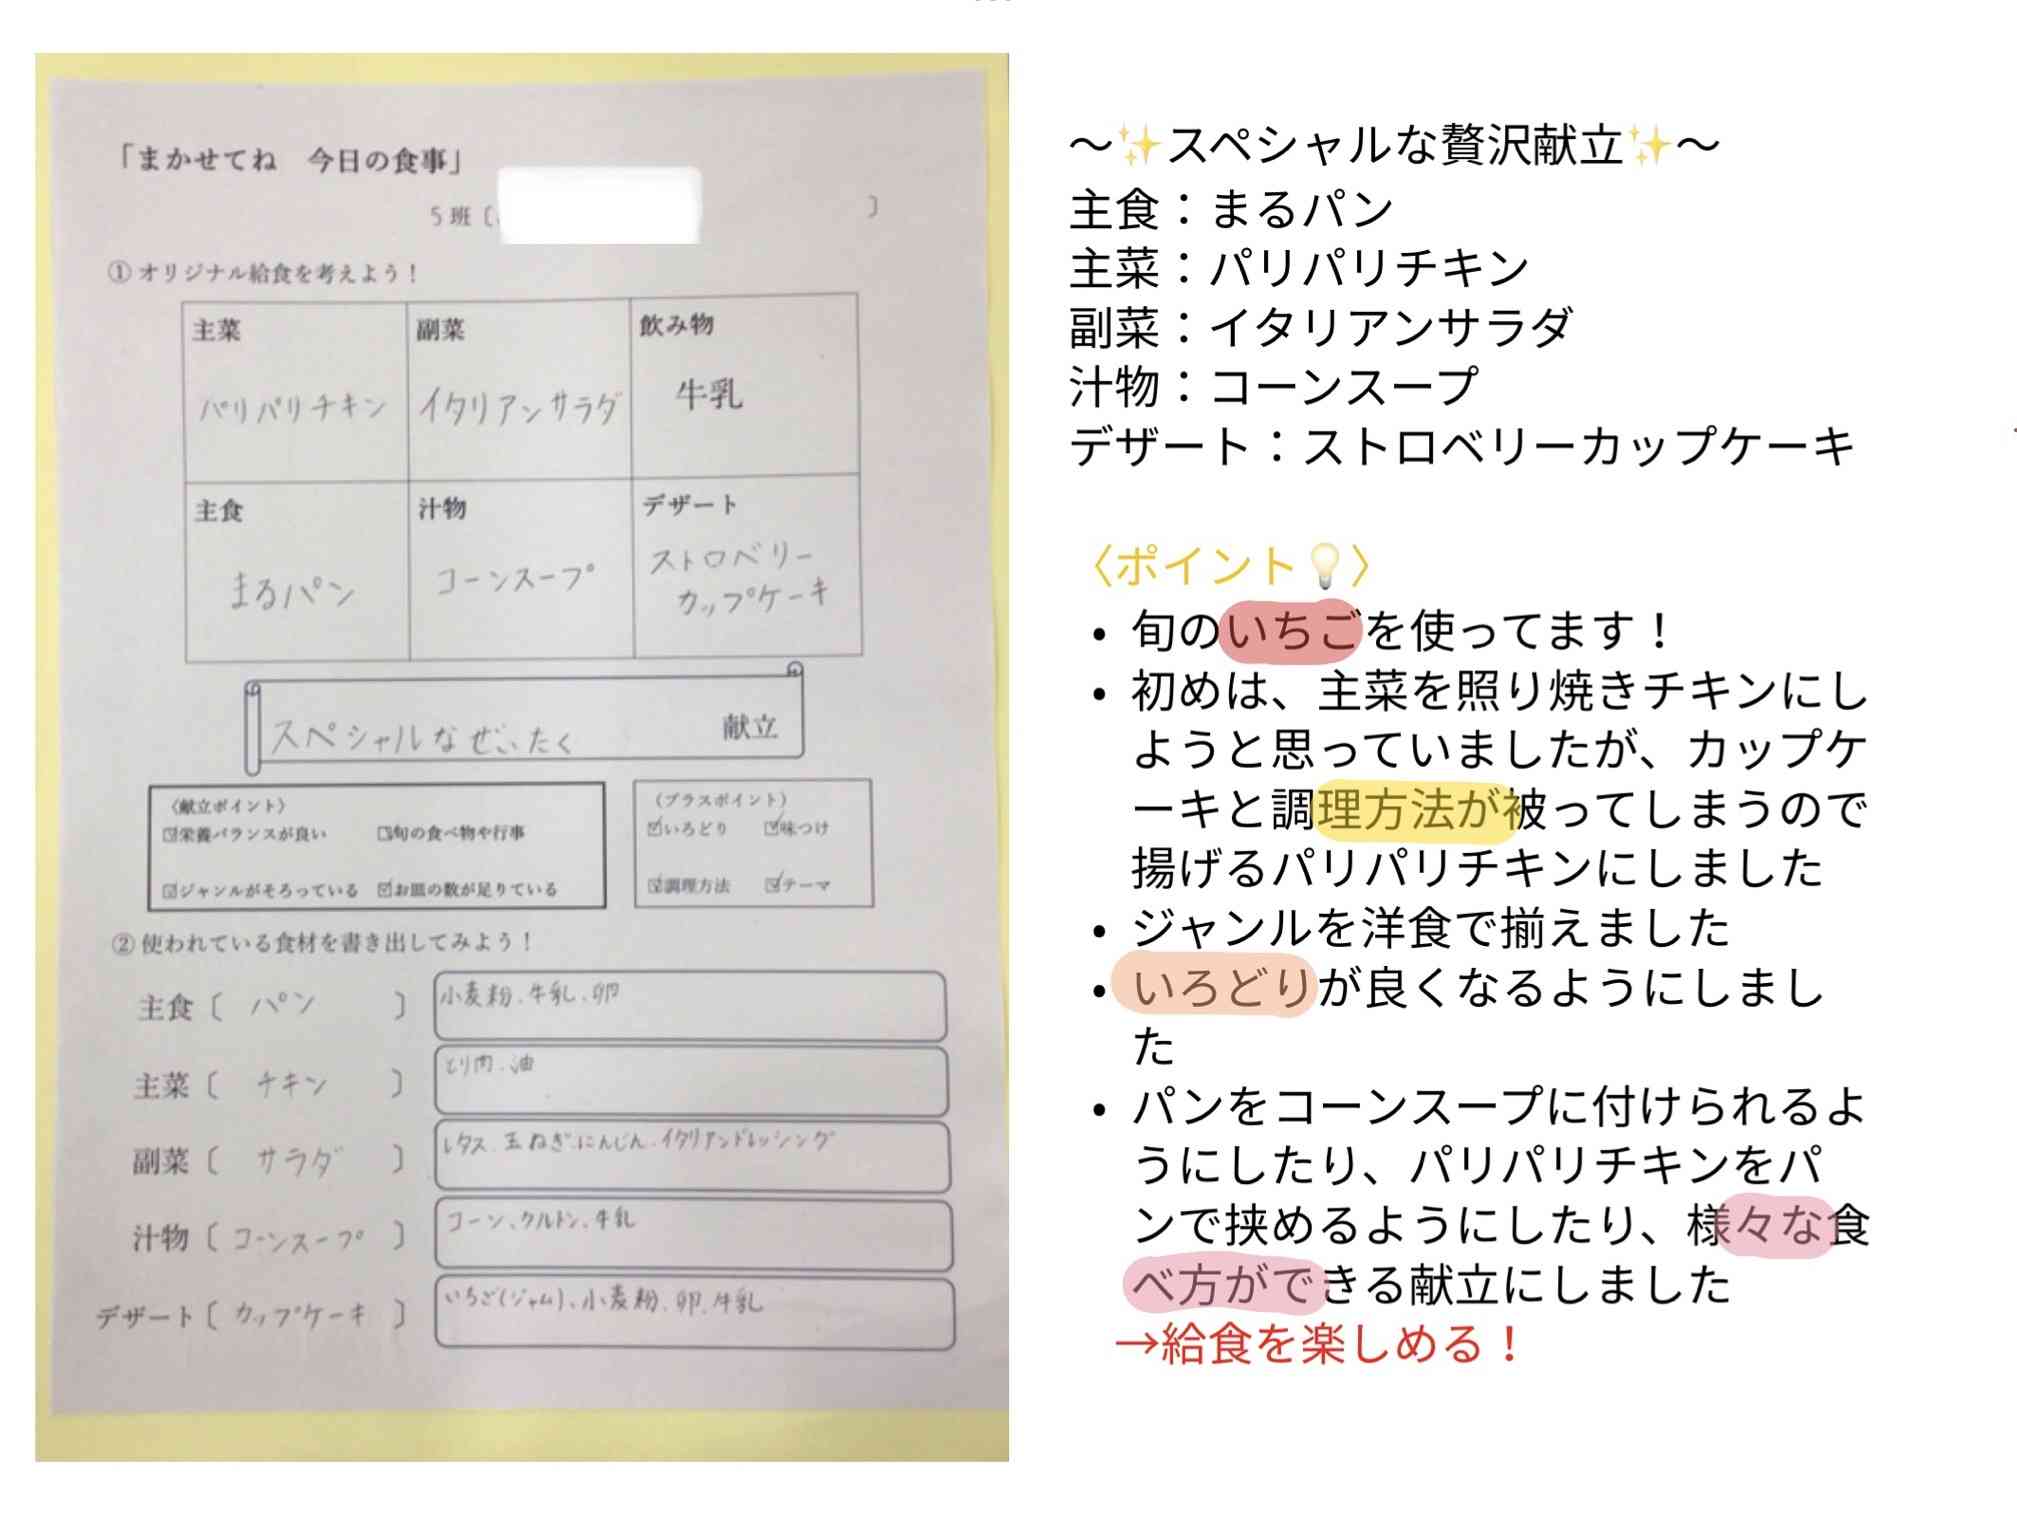 「まかせてね 今日の食事」
5班〔
〕
①オリジナル給食を考えよう！
主菜
副菜
飲み物
パリパリチキン
イタリアンサラダ
牛乳
主食
汁物
デザート
まるパン
コーンスープ
ストロベリー
カップケーキ
スペシャルなぜいたく 献立
〈献立ポイント〉
☑栄養バランスが良い ☑旬の食べ物や行事
☑ジャンルがそろっている ☑お皿の数が足りている
（プラスポイント）
☑いろどり ☑味つけ
☑調理方法 ☑テーマ
②使われている食材を書き出してみよう！
主食〔 パン 〕 小麦粉、牛乳、卵
主菜〔 チキン 〕 とり肉、油
副菜〔 サラダ 〕 レタス、玉ねぎ、にんじん、イタリアンドレッシング
汁物〔 コーンスープ 〕 コーン、クルトン、牛乳
デザート〔 カップケーキ 〕 いちご(ジャム)、小麦粉、卵、牛乳
〜✨スペシャルな贅沢献立✨〜
主食：まるパン
主菜：パリパリチキン
副菜：イタリアンサラダ
汁物：コーンスープ
デザート：ストロベリーカップケーキ
〈ポイント💡〉
• 旬のいちごを使ってます！
• 初めは、主菜を照り焼きチキンにし
ようと思っていましたが、カップケ
ーキと調理方法が被ってしまうので
揚げるパリパリチキンにしました
• ジャンルを洋食で揃えました
• いろどりが良くなるようにしまし
た
• パンをコーンスープに付けられるよ
うにしたり、パリパリチキンをパ
ンで挟めるようにしたり、様々な食
べ方ができる献立にしました
→給食を楽しめる！